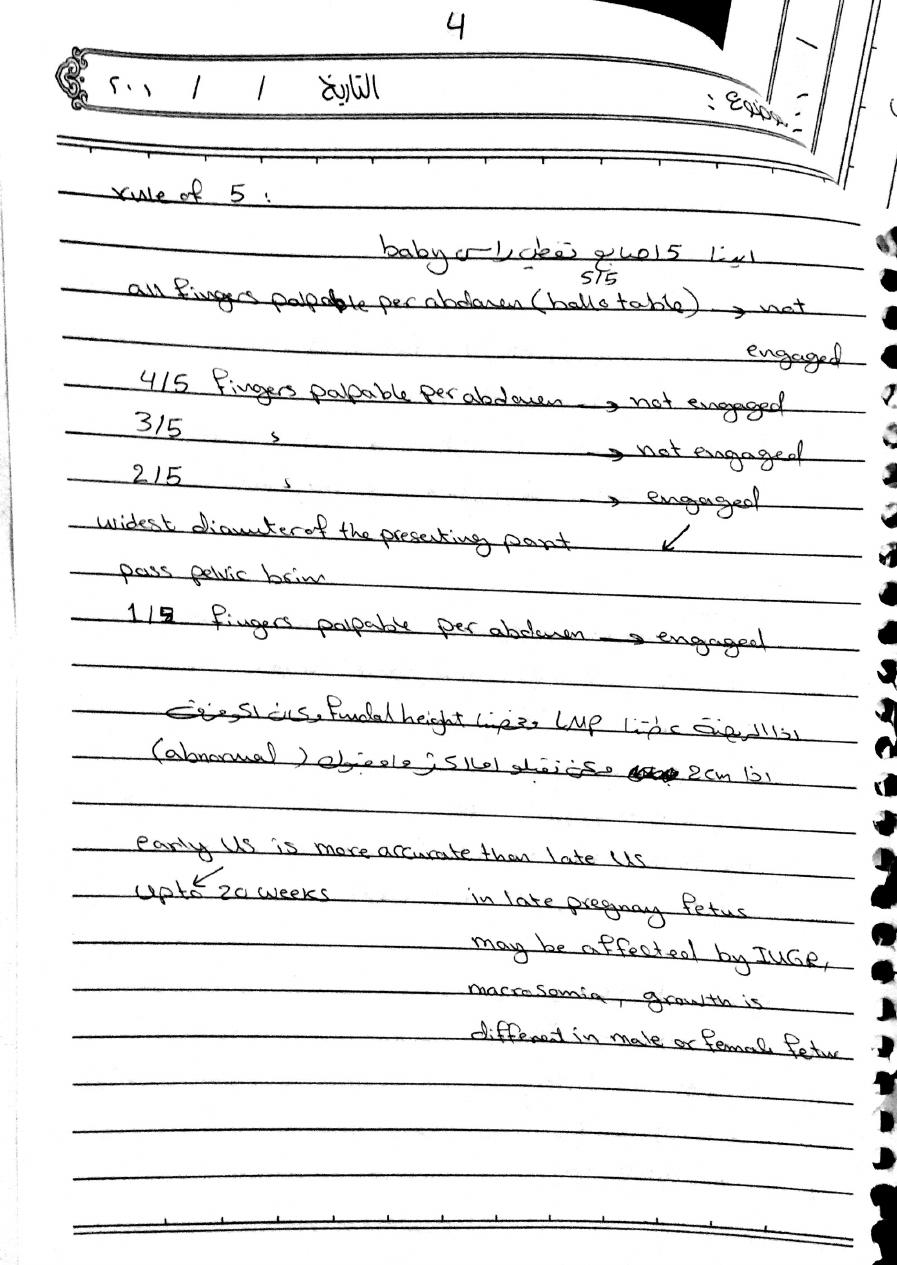 4
التاريخ / / ٢٠٠١
موضوع :
rule of 5 :
لدينا 5 اصابع تغطي راس baby
5/5
all fingers palpable per abdomen (ballotable) → not
engaged
4/5 fingers palpable per abdomen → not engaged
3/5 ، → not engaged
2/5 ، → engaged
widest diameter of the presenting part ↙
pass pelvic brim
1/5 fingers palpable per abdomen → engaged
اذا المريضة عطتنا LMP وحضينا fundal height وكان اكو فرق
اذا 2cm ممكن نقبله اما اكثر ما مقبول (abnormal)
early US is more accurate than late US
upto 20 weeks
in late pregnay fetus
may be affected by IUGR,
macrosomia, growth is
different in male or female fetus